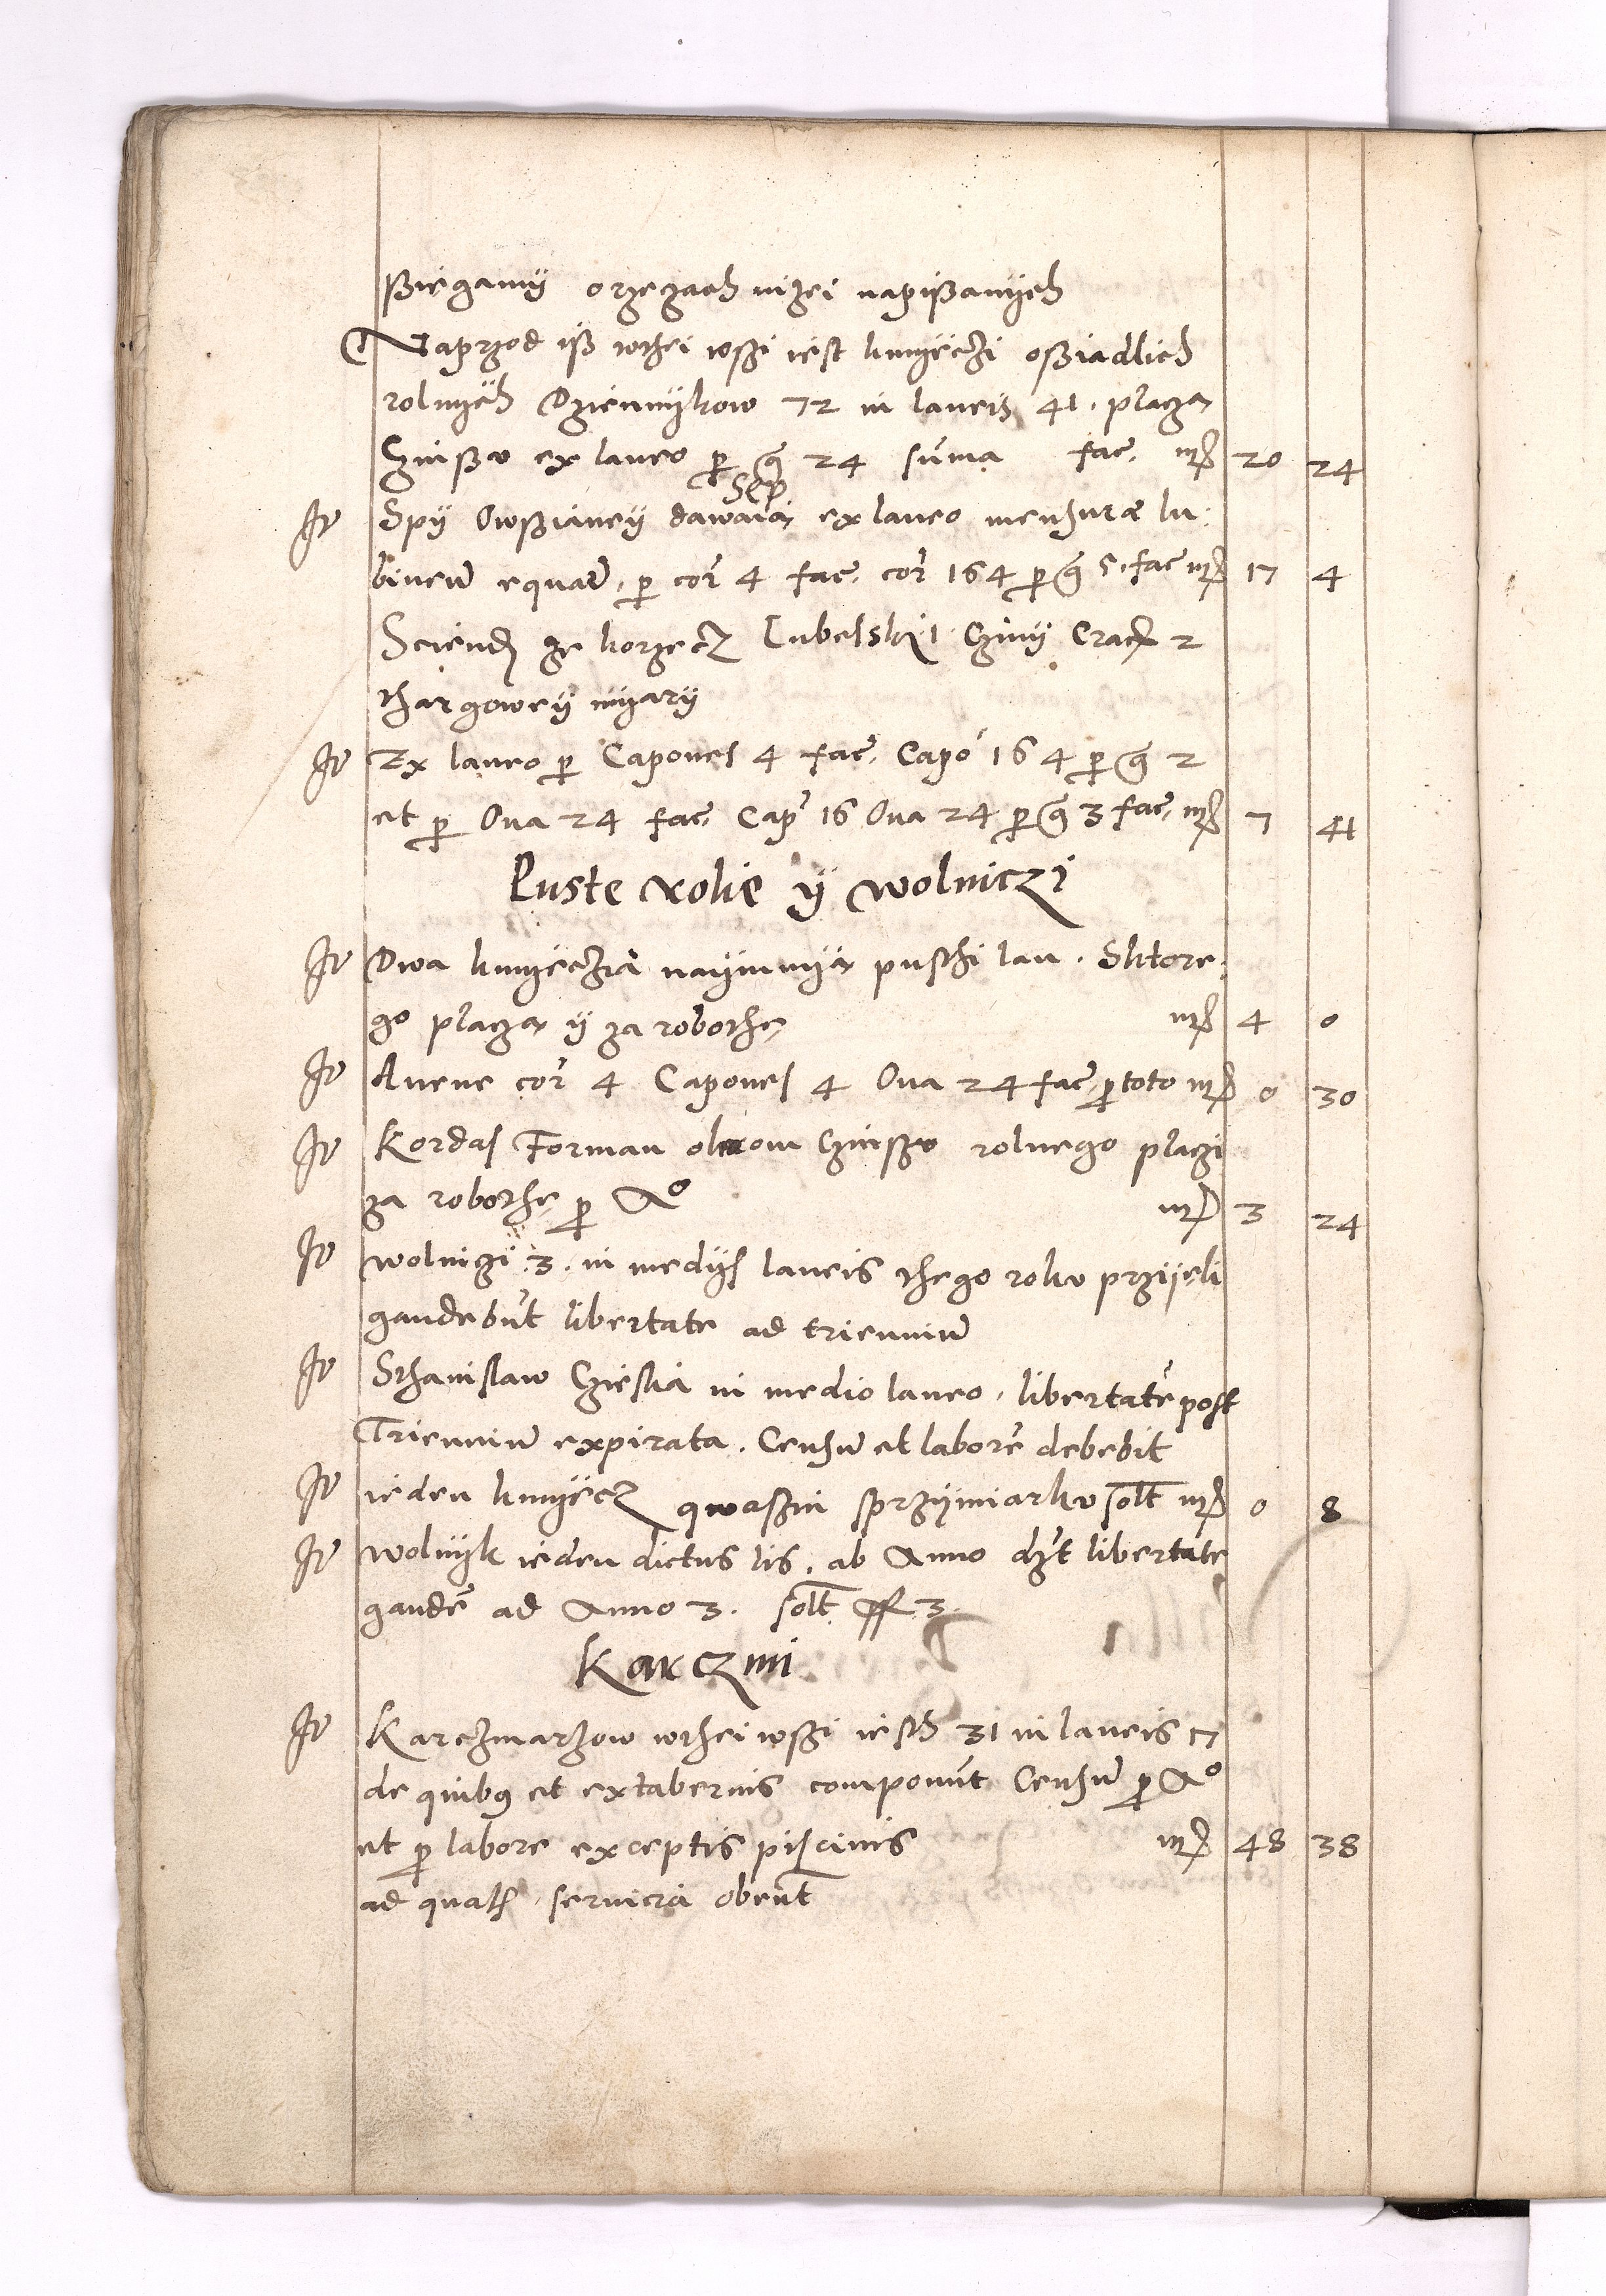 ßiegamy orzeczach nizei napißanych
Naprzod iß wthei wßi iest kmyeczi oßiadlich
rolnych Dziennykow 72 in laneis 41. placza
Czinßw ex laneo p g 24 suma fac. mr 20 24
Sep
It Spy Owßianey dawaia ex laneo mensuræ lu:
blineñ equañ. p cor 4 fac. cor 164 p g 5. fac mr 17 4
Sciend ze korzecz Lubelski 1 Cziny Crac 2
thargowey myary
It Ex laneo p Capones 4 fac. Capo 164 p g 2
et p Oua 24 fac. Cap 16 Oua 24 p g 3 fac. mr 7 41
Puste rolie y wolniczi
It Dwa kmyeczia naymuya pusthi lan. Sktore:
go placza y za robothe mr 4 0
It Auene cor 4 Capones 4 Oua 24 fac p toto mr 0 30
It Kordas Forman okrom Czinszw rolnego placzi
za robothe p Ao mr 3 24
It wolniczi 3. in medys laneis thego rokv przijeli
gaudebut libertate ad trienniu
It Sthanislaw Cziesla in medio laneo. libertate post
Trienniu expirata. Censu et labore debebit
It ieden kmyecz qwaßni sprzymiarkv solt mr 0 8
It wolnyk ieden dictus lis. ab Anno dyt libertate
gaude ad Anno 3. solt ff 3.
Karczmi
It Karczmarzow wthei wßi iesth 31 in laneis 17
de quibus et ex tabernis componut Censu p Ao
et p labore exceptis piscinis mr 48 38
ad quas seruicia obeut